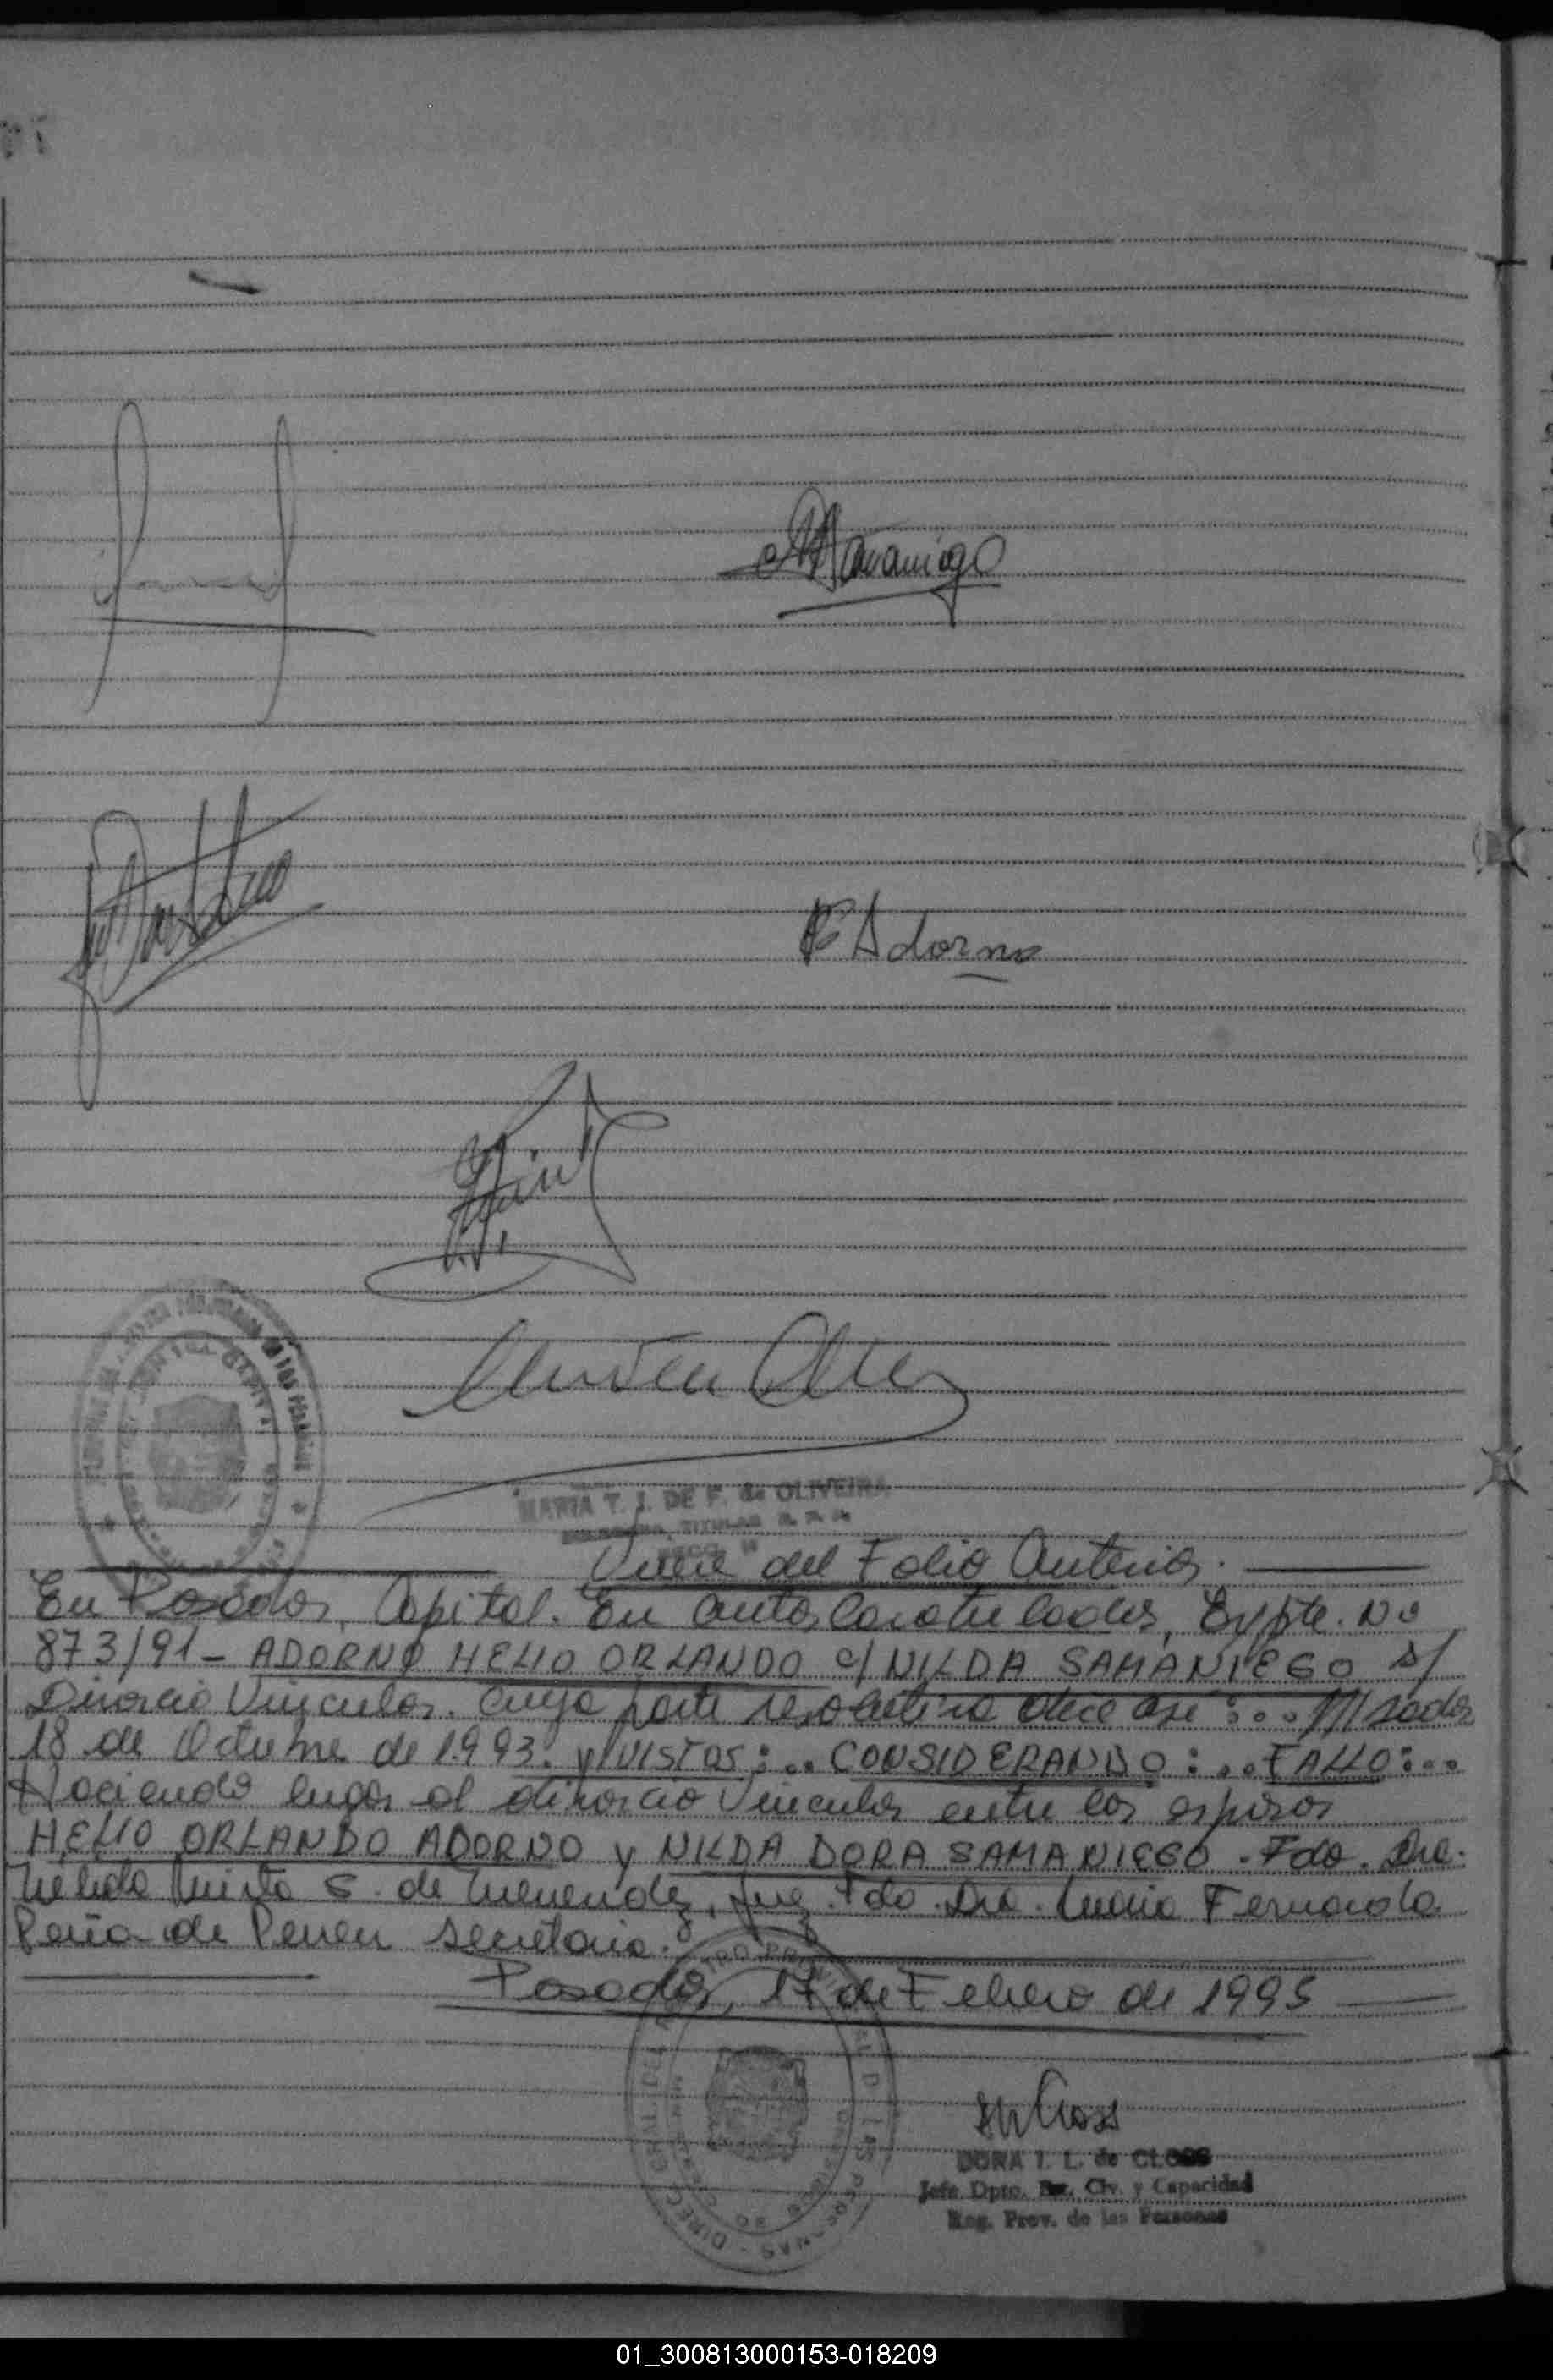 Samaniego
E Adorno
MARIA T. J. DE F. de OLIVEIRA
TITULAR
Viene del Folio Anterior.
En Posadas, Capital. En autos Caratulados, Expte. Nº
873/91 - ADORNO HELIO ORLANDO c/ NILDA SAMANIEGO S/
Divorcio Vincular. Cuya parte resolutiva dice así: ... ///sadas
18 de Octubre de 1993. y VISTOS: .. CONSIDERANDO: ... FALLO: ...
Haciendo lugar al divorcio Vincular entre los esposos
HELIO ORLANDO ADORNO y NILDA DORA SAMANIEGO. Fdo. Dra.
Mirta S. de Menendez, Juez. Fdo. Dra. María Fernanda
Peria de Perren Secretaria.
Posadas, 17 de Febrero de 1995
DORA T. L. de CLOSS
Jefe Dpto. Civ. y Capacidad
Reg. Prov. de las Personas
01_300813000153-018209